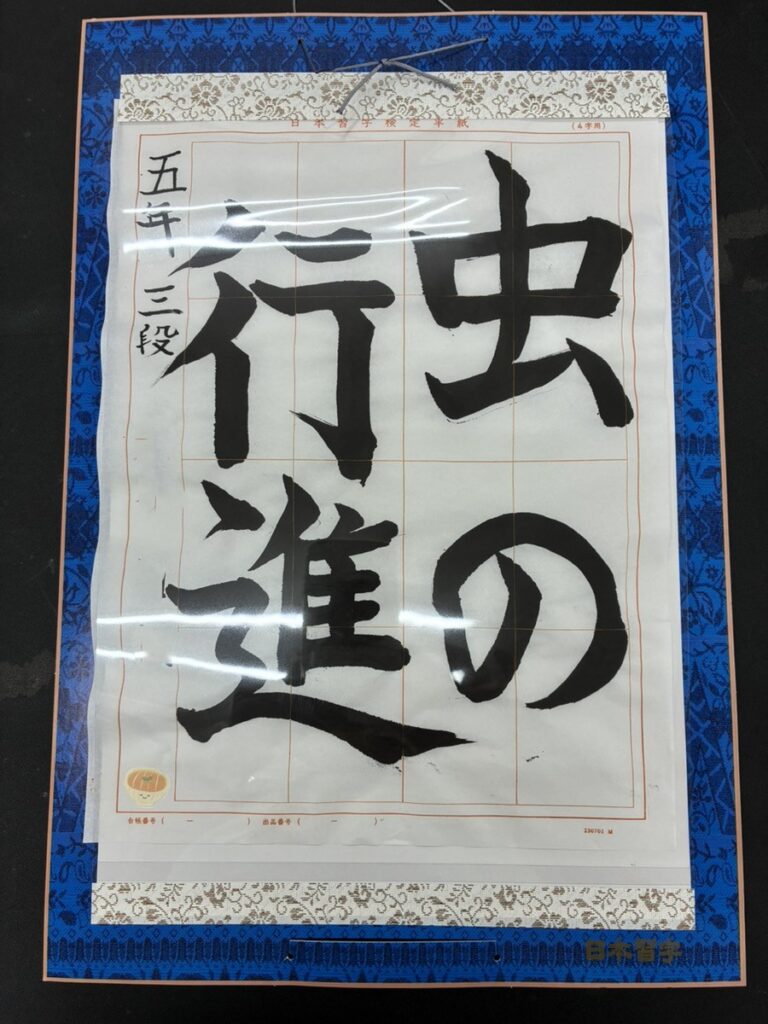 日本習字検定半紙
(4字用)
虫の
行進
五年 三段
台帳番号( ー ) 出品番号( ー )
230701 M
日本習字